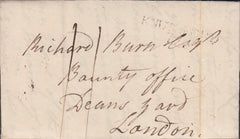 Richard Burn Esqr
Bounty office
Deans yard
London.